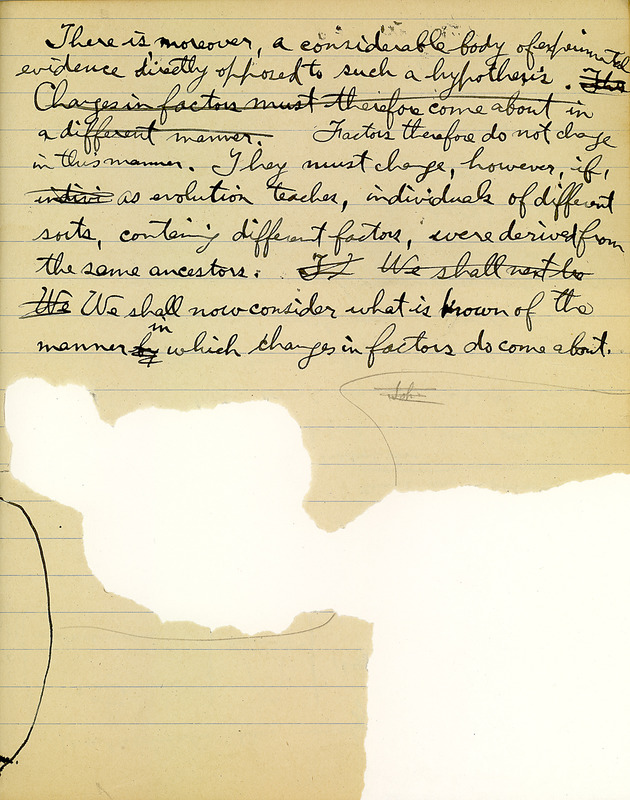 There is, moreover, a considerable body of experimental
evidence directly opposed to such a hypothesis. The
Changes in factors must therefore come about in
a different manner. Factors therefore do not change
in this manner. They must change, however, if,
indivi as evolution teaches, individuals of different
sorts, containing different factors, were derived from
the same ancestors. We shall next be
We We shall now consider what is known of the
manner by in which changes in factors do come about.